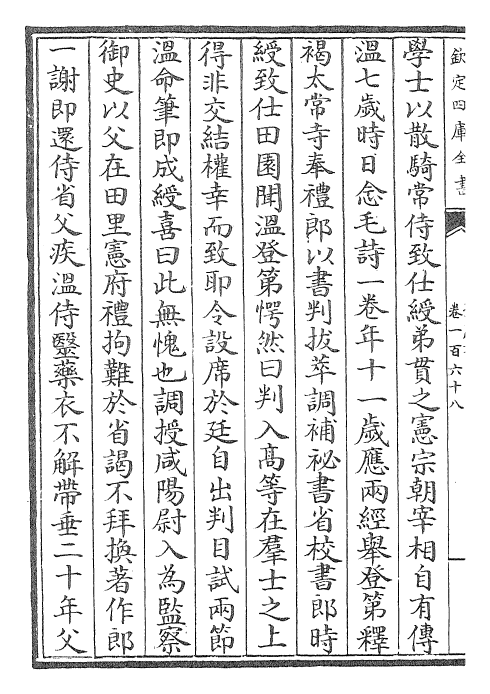 欽定四庫全書
卷一百六十八
學士以散騎常侍致仕綬弟貫之憲宗朝宰相自有傳
溫七歲時日念毛詩一卷年十一歲應兩經舉登第釋
褐太常寺奉禮郎以書判拔萃調補祕書省校書郎時
綬致仕田園聞溫登第愕然曰判入高等在羣士之上
得非交結權幸而致耶令設席於廷自出判目試兩節
溫命筆即成綬喜曰此無愧也調授咸陽尉入為監察
御史以父在田里憲府禮拘難於省謁不拜換著作郎
一謝即還侍省父疾溫侍醫藥衣不解帶垂二十年父